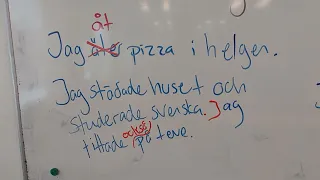 åt
Jag äter pizza i helgen.
Jag städade huset och
studerade svenska. Jag
också
tittade på teve.